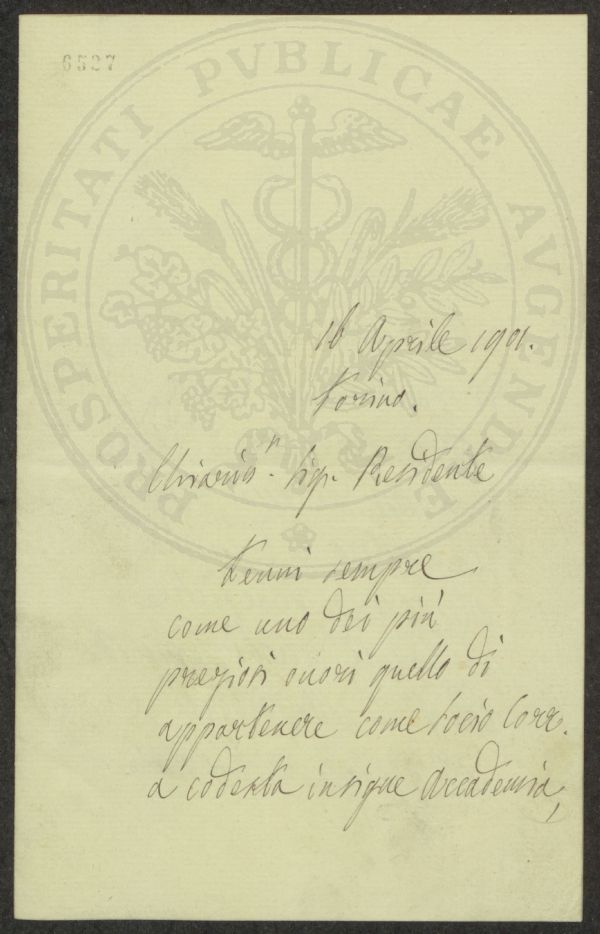 6527
PROSPERITATI PVBLICAE AVGENDAE
16 Aprile 1901.
Torino.
Chiariss.º Sig. Presidente
Tenni sempre
come uno dei più
preziosi onori quello di
appartenere come socio Corr.
a codesta insigne Accademia,